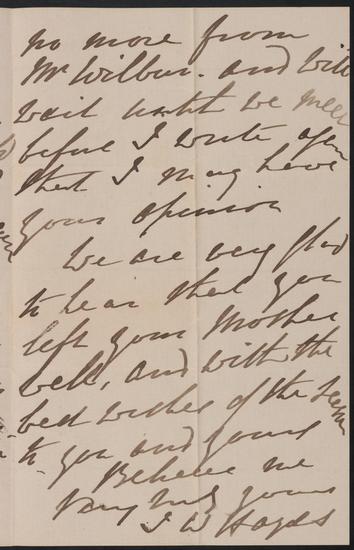 no more from
Mr Wilbur. and will
wait until we meet
before I write again
that I may have
your opinion
We are very glad
to hear that you
left your Mother
well, and with the
best wishes of the
to you and yours
Believe me
Very truly yours
I W Hayes